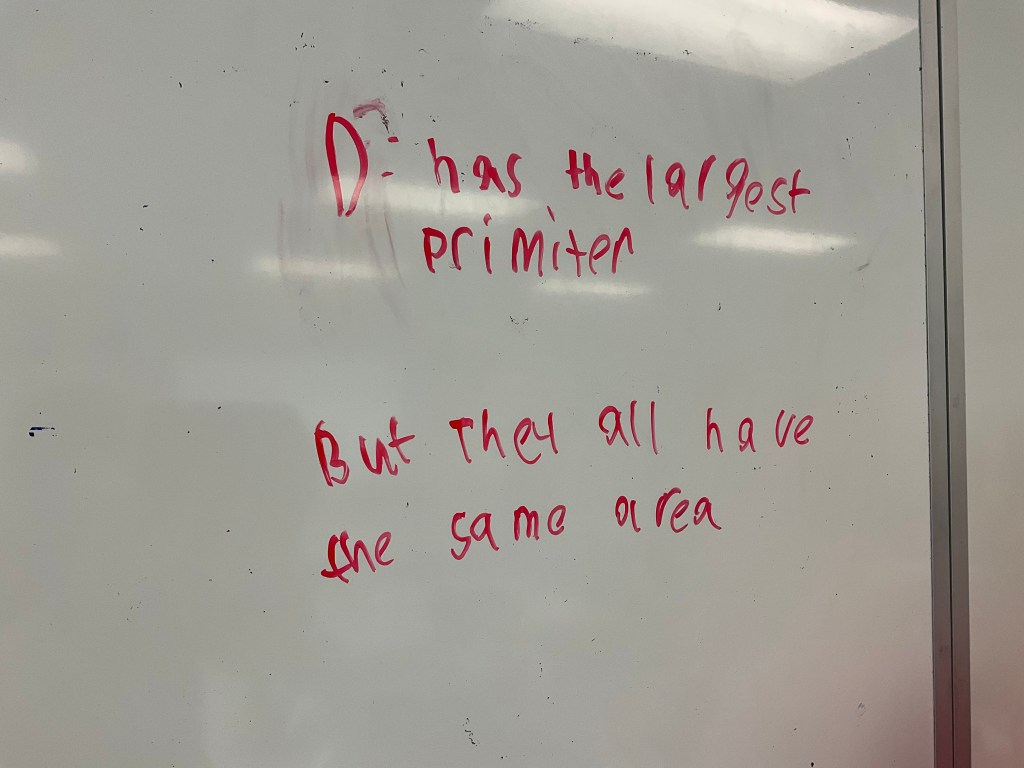 D: has the largest
primiter
But They all have
the same area